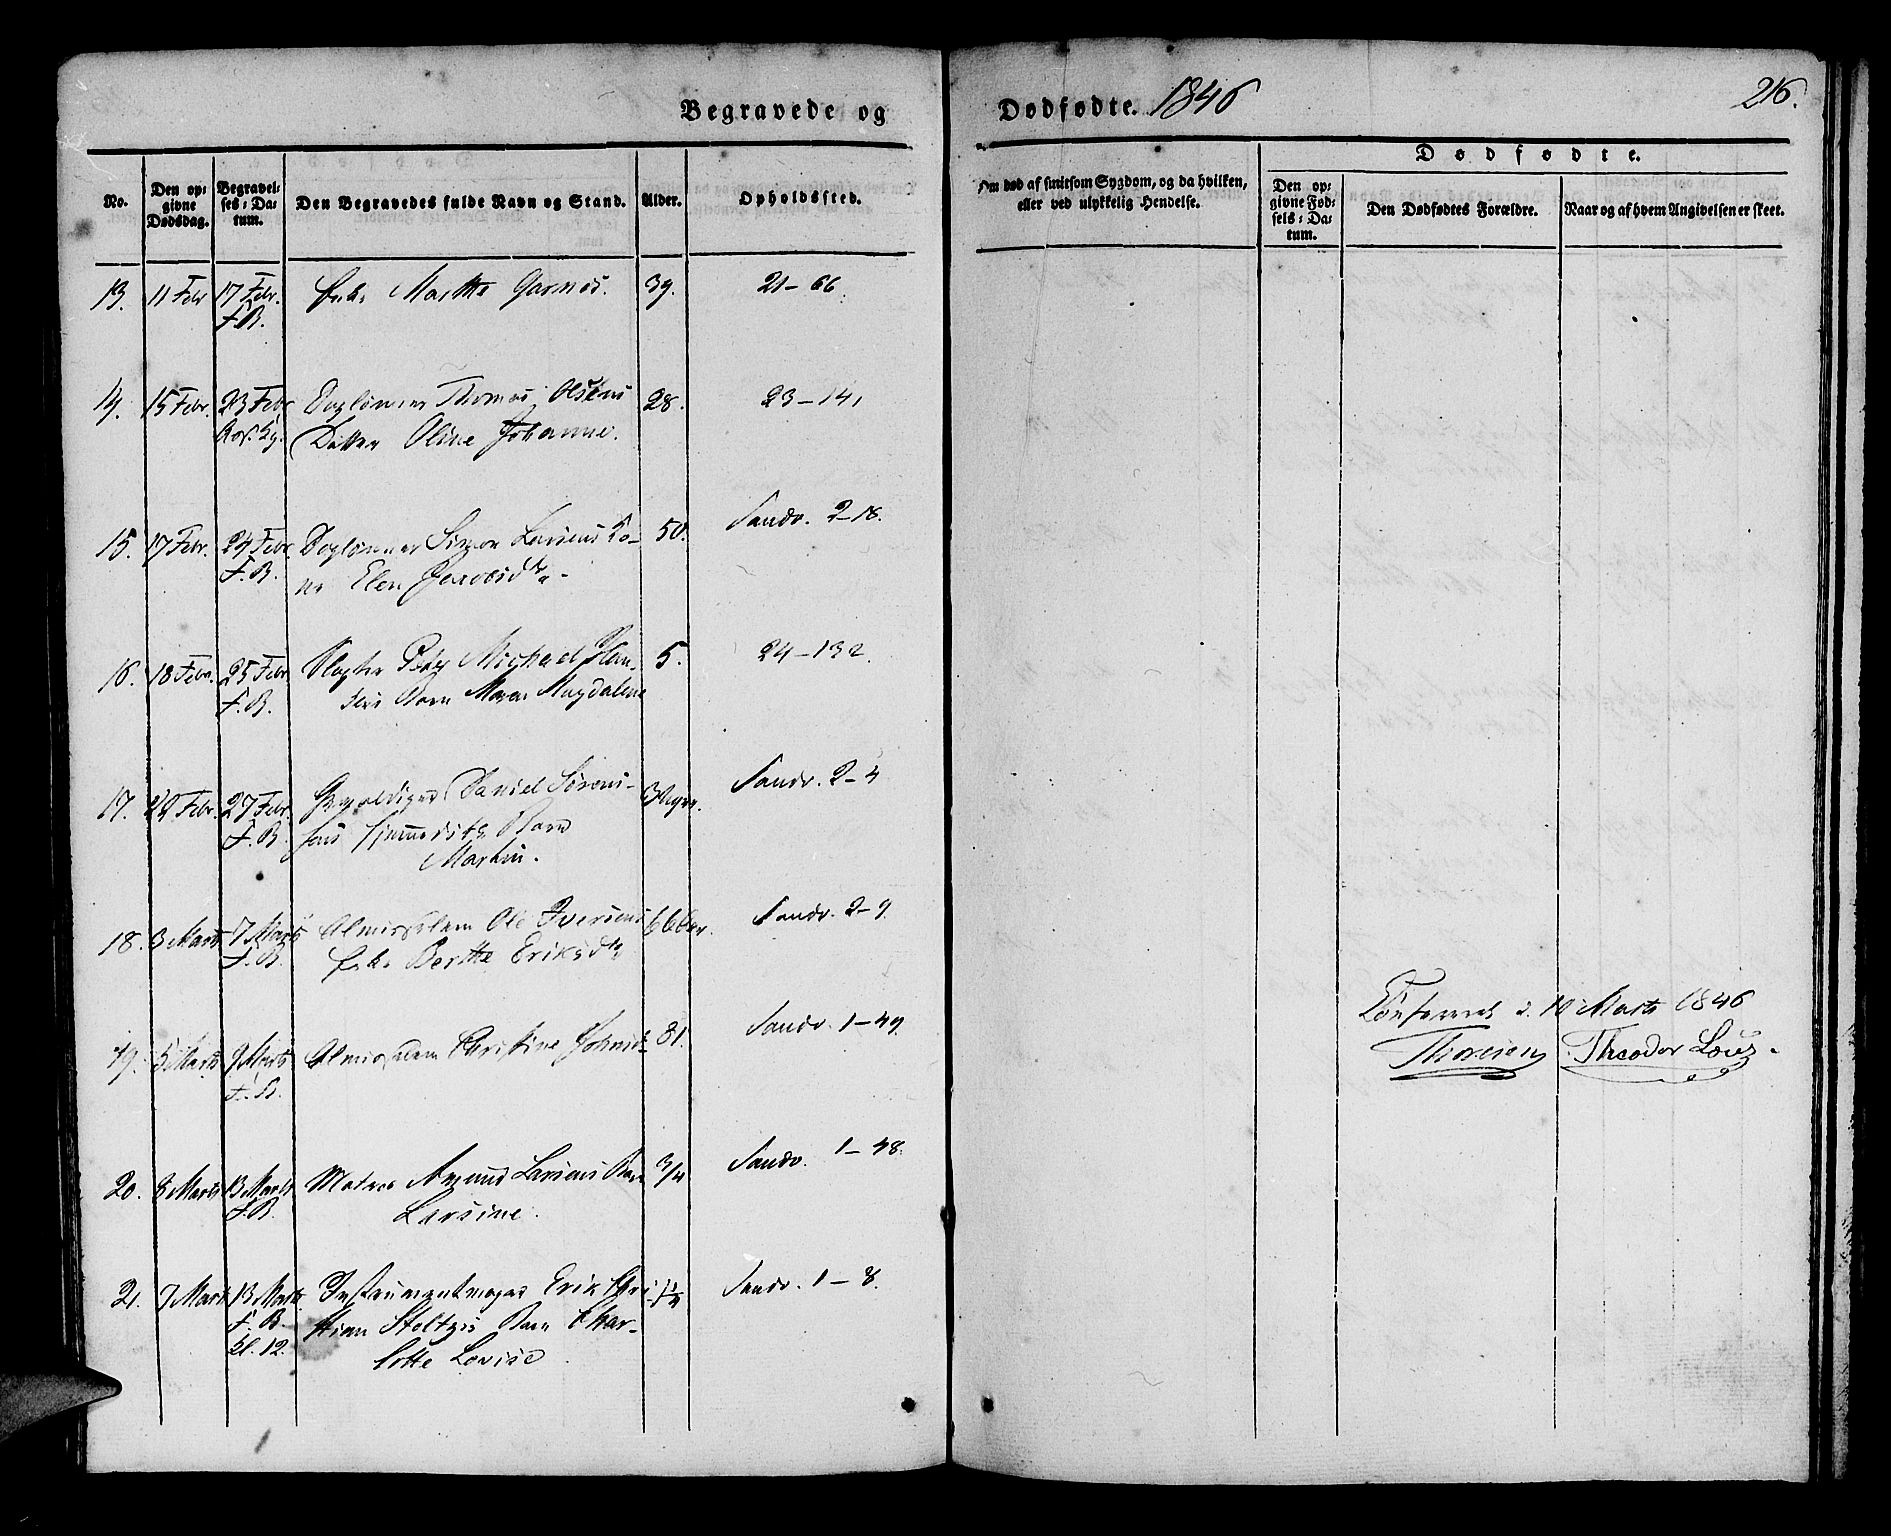 Begravede og Dødfødte. 1846
216.
No.
Den opgivne Dødsdag.
Begravelses-Datum.
Den Begravedes fulde Navn og Stand.
Alder.
Opholdssted.
Om død af smitsom Sygdom, og da hvilken, eller ved ulykkelig Hendelse.
Dødfødte.
Den opgivne Fødsels-Datum.
Den Dødfødtes Forældre.
Naar og af hvem Angivelsen er skeet.
13. 11 Febr 17 Febr. Enke Marthe Garnæs. 39. 21–66.
F.B.
14. 15 Febr. 23 Febr Dagleiner Thomas Olsens 28. 23–141
Datter Oline Johanne.
15. 17 Febr. 24 Febr Dagleiner Simon Larsens Ko- 50. Sandv. 2–18.
F.B. ne Elen
16. 18 Febr. 25 Febr. Slagter Michael Han- 5. 24–132.
F.B. sens Barn Maren Magdalene
17. 22 Febr. 27 Febr. Daniel Sørens- 3 Uger. Sandv. 2–4
F.B. sens Barn
Martin.
18. 3 Marts 7 Marts Almisselem Ole Iversens 66 Sandv. 2–9.
F.B. Enke Berthe Eriksdtr
19. 5 Marts 9 Marts Almisselem Christine 81. Sandv. 1–49.
F.B.
20. 8 Marts 13 Marts Matros Amund Larsens Barn 3/4 Sandv. 1–48.
F.B. Larsine.
21. 7 Marts 13 Marts. Instrumentmager Erik Chri- Sandv. 1–8.
F.B. stian Stoltzes Barn Char-
Kl. 12. lotte Lovise
Conforeret d. 10 Marts 1846
Thoresen Theodor